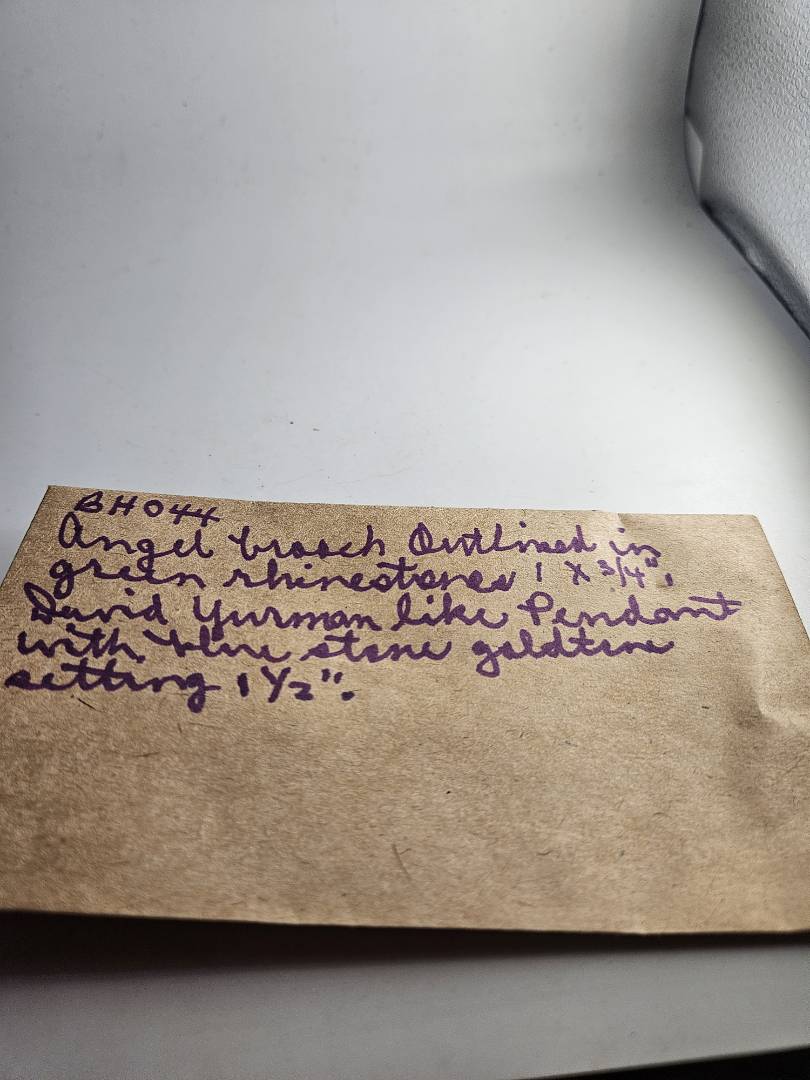 BH044
Angel brooch Outlined in
green rhinestones 1 X 3/4",
David Yurman like Pendant
with blue stone goldtone
setting 1 1/2".